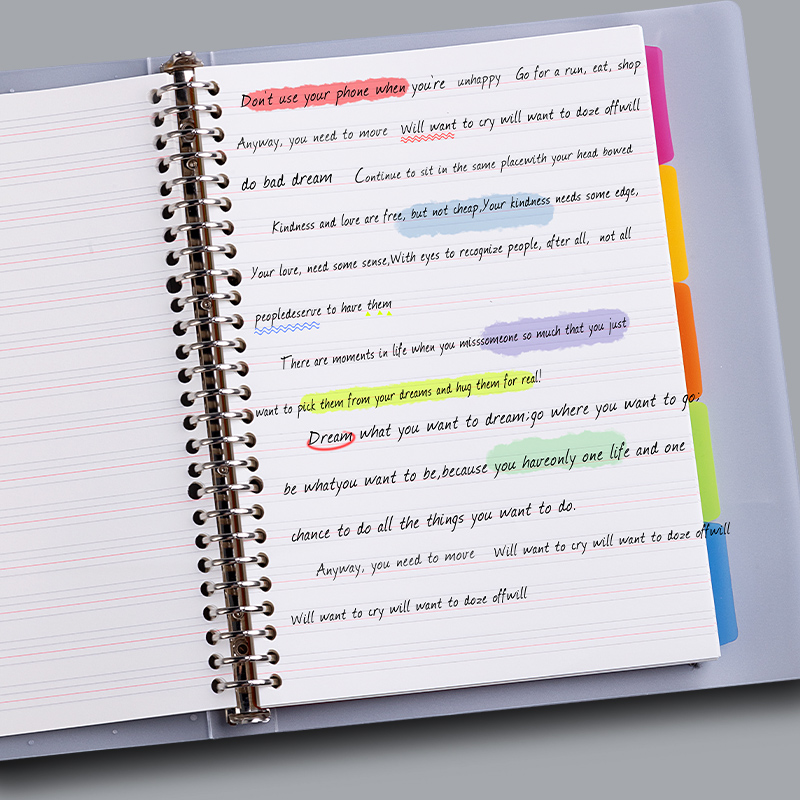 Don't use your phone when you're unhappy Go for a run, eat, shop
Anyway, you need to move Will want to cry will want to doze offwill
do bad dream Continue to sit in the same placewith your head bowed
Kindness and love are free, but not cheap,Your kindness needs some edge,
Your love, need some sense,With eyes to recognize people, after all, not all
peopledeserve to have them
There are moments in life when you misssomeone so much that you just
want to pick them from your dreams and hug them for real!
Dream what you want to dream;go where you want to go;
be whatyou want to be,because you haveonly one life and one
chance to do all the things you want to do.
Anyway, you need to move Will want to cry will want to doze offwill
Will want to cry will want to doze offwill